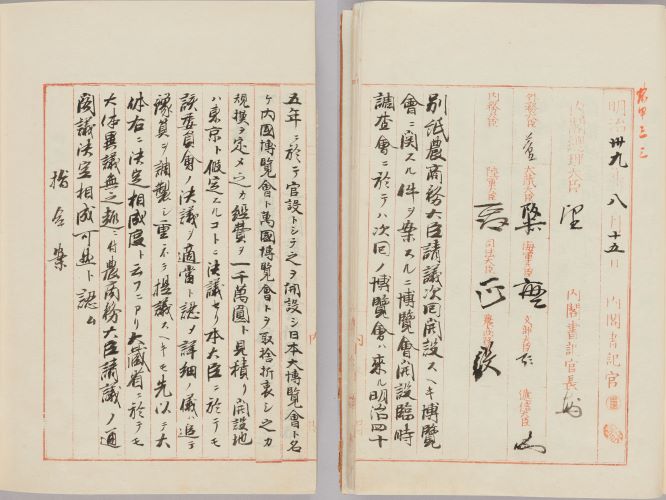 明治卅九年八月十五日 内閣書記官
内閣總理大臣 内閣書記官長
外務大臣 大藏大臣 海軍大臣 文部大臣 遞信大臣
内務大臣 陸軍大臣 司法大臣 農商務大臣
別紙農商務大臣請議次回開設スヘキ博覽
會ニ関スル件ヲ案スルニ博覽會開設臨時
調査會ニ於テハ次回ノ博覽會ハ來ル明治四十
五年ニ於テ官設トシテ之ヲ開設シ日本大博覽會ト名
ケ内國博覽會ト萬國博覽會トヲ取捨折衷シ之カ
規模ヲ定メ之カ經費ヲ一千萬圓ト見積リ開設地
ハ東京ト假定スルコトニ決議セリ本大臣ニ於テモ
該委員會ノ決議ヲ適當ト認メ詳細ノ儀ハ追テ
豫算ヲ調製シ重ネテ提議スヘキモ先以テ大
体右ニ決定相成度ト云フニアリ大藏省ニ於テモ
大体異議無之趣ニ付農商務大臣請議ノ通
閣議決定相成可然ト認ム
指令案